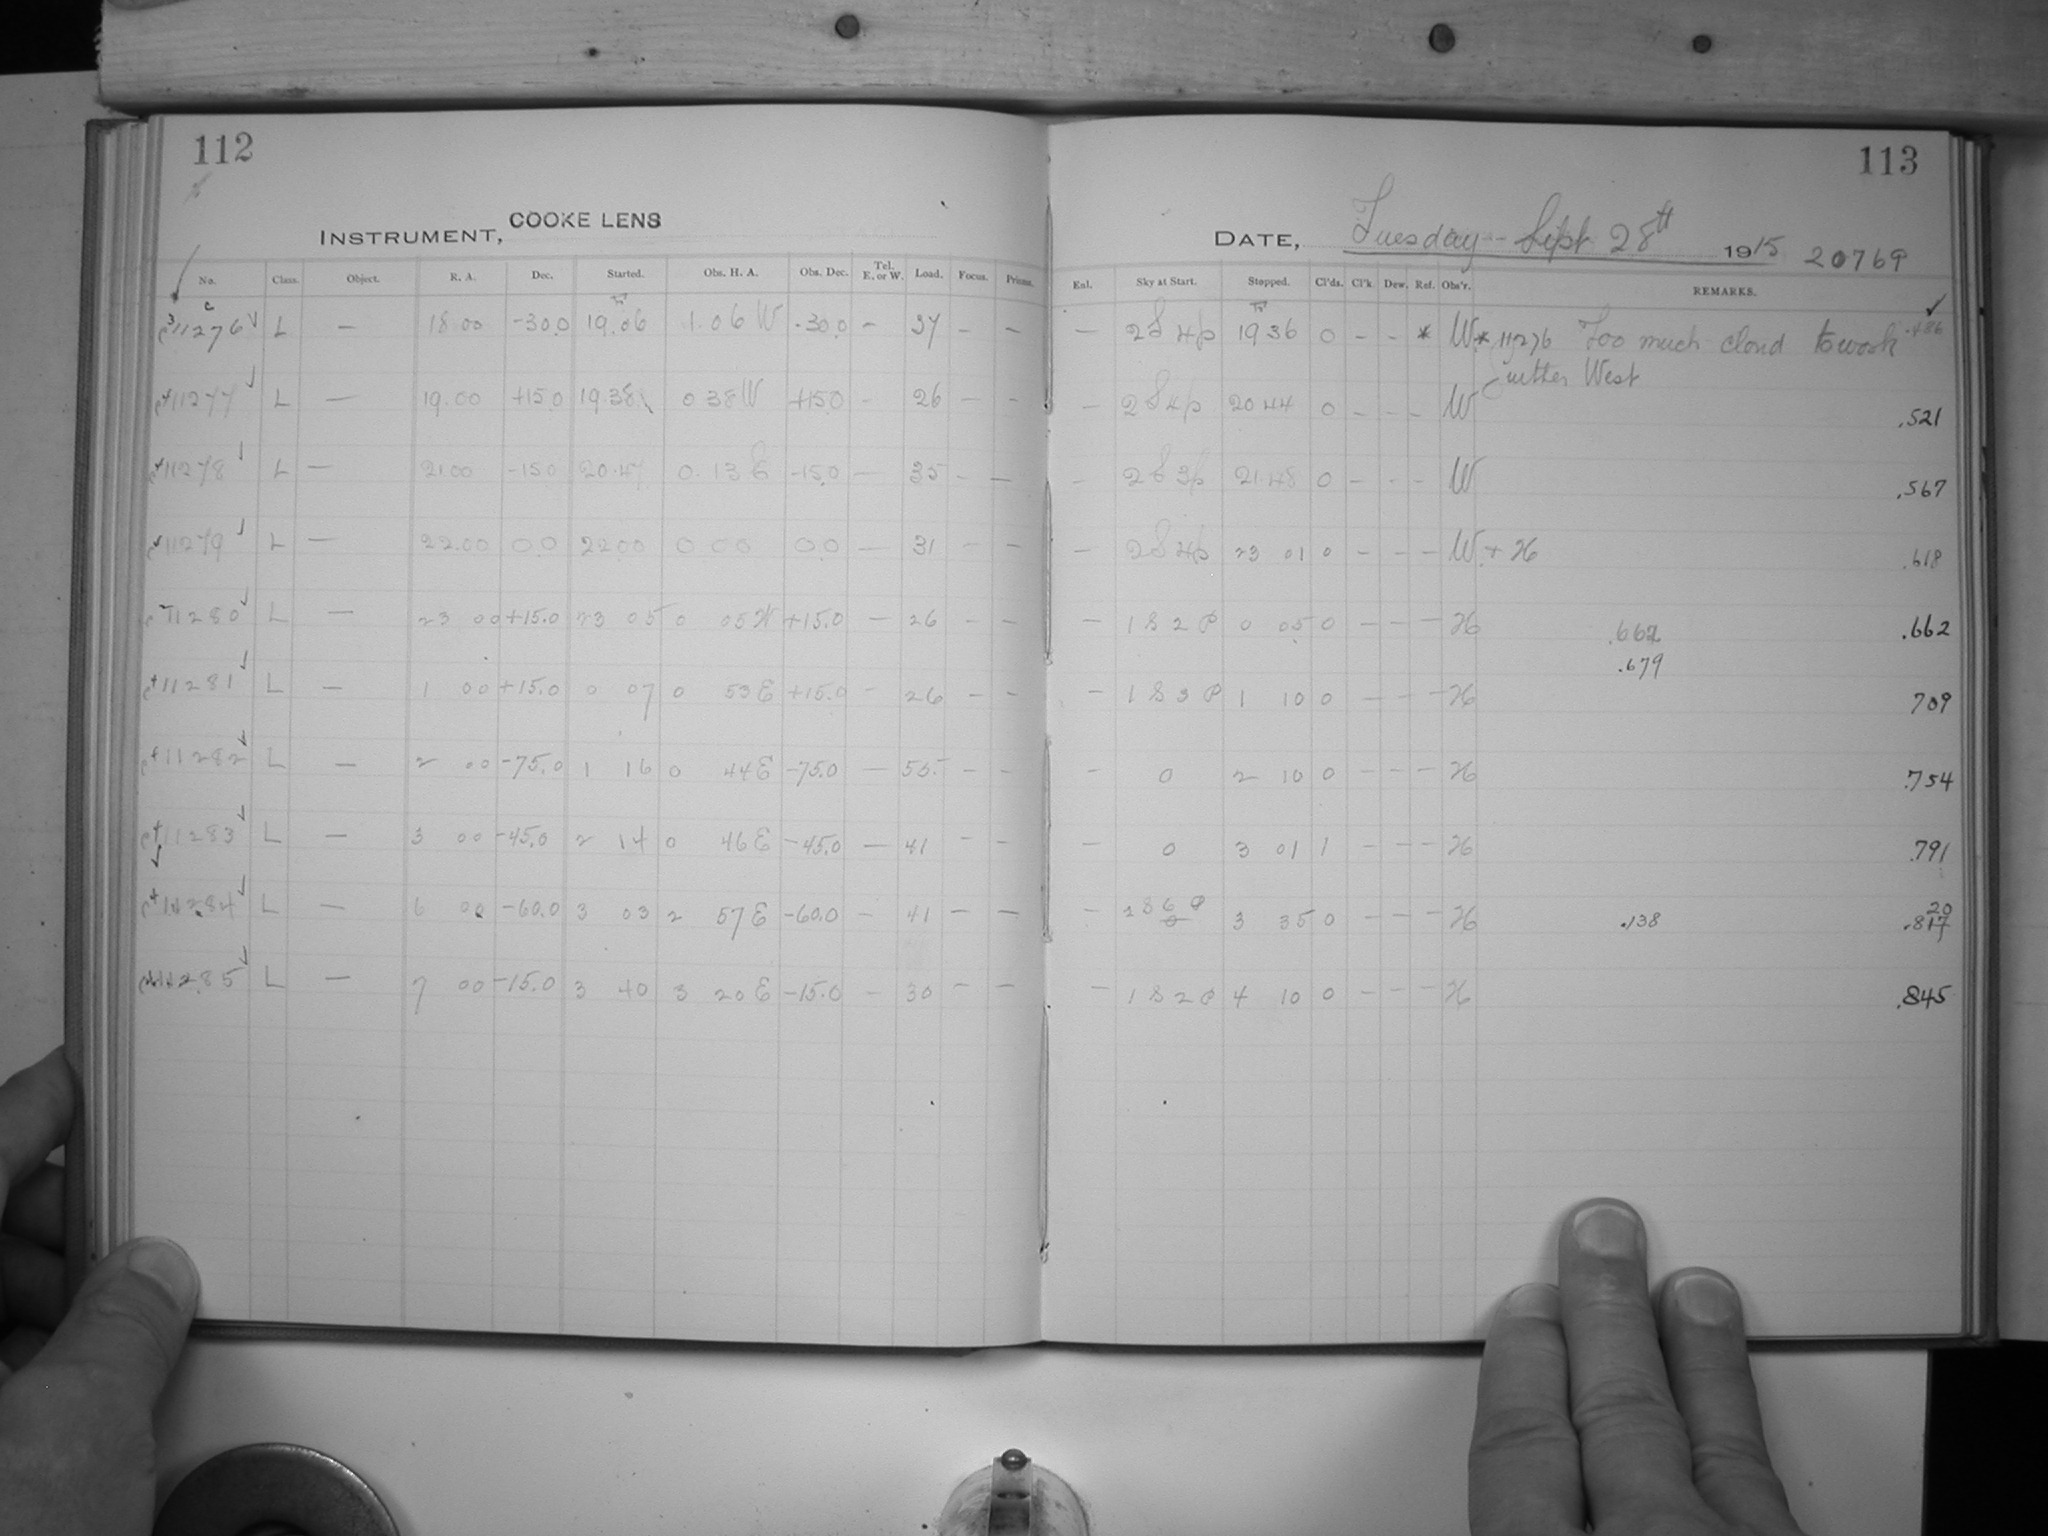 112
INSTRUMENT, COOKE LENS
No. Class. Object. R. A. Dec. Started. Obs. H. A. Obs. Dec. Tel. E. or W. Load. Focus. Prisms.
11276 L — 18.00 -30.0 19.06 1.06 W -30.0 - 37 - -
11277 L — 19.00 +15.0 19.38 0 38 W +15.0 - 26 - -
11278 L — 21.00 -15.0 20.47 0.13 E -15.0 — 35 - —
11279 L — 22.00 0.0 22.00 0 00 0.0 — 31 - -
11280 L — 23 00 +15.0 23 05 0 05 W +15.0 — 26 - -
11281 L — 1 00 +15.0 0 07 0 53 E +15.0 - 26 - -
11282 L — 2 00 -75.0 1 16 0 44 E -75.0 — 55 - -
11283 L — 3 00 -45.0 2 14 0 46 E -45.0 — 41 - -
11284 L — 6 00 -60.0 3 03 2 57 E -60.0 - 41 — —
11285 L — 7 00 -15.0 3 40 3 20 E -15.0 - 30 - -
113
DATE, Tuesday - Sept 28th 1915 20769
Enl. Sky at Start. Stopped. Cl'ds. Cl'k Dew. Ref. Obs'r. REMARKS.
— 2S 4p 19 36 0 - - * W * 11276 Too much cloud to work .486
further West
— 2S 4p 20 44 0 - - - W .521
- 2S 3p 21.48 0 - - - W .567
— 2S 4p 23 01 0 - - - W + H .618
— 1 S 2 P 0 05 0 - - - H .662 .662
.679
— 1 S 3 P 1 10 0 — - - H 709
- 0 2 10 0 - - - H .754
— 0 3 01 1 - - - H .791
- 1 S 6 P 3 35 0 - - - H .138 .817 20
— 1 S 2 P 4 10 0 - - - H .845